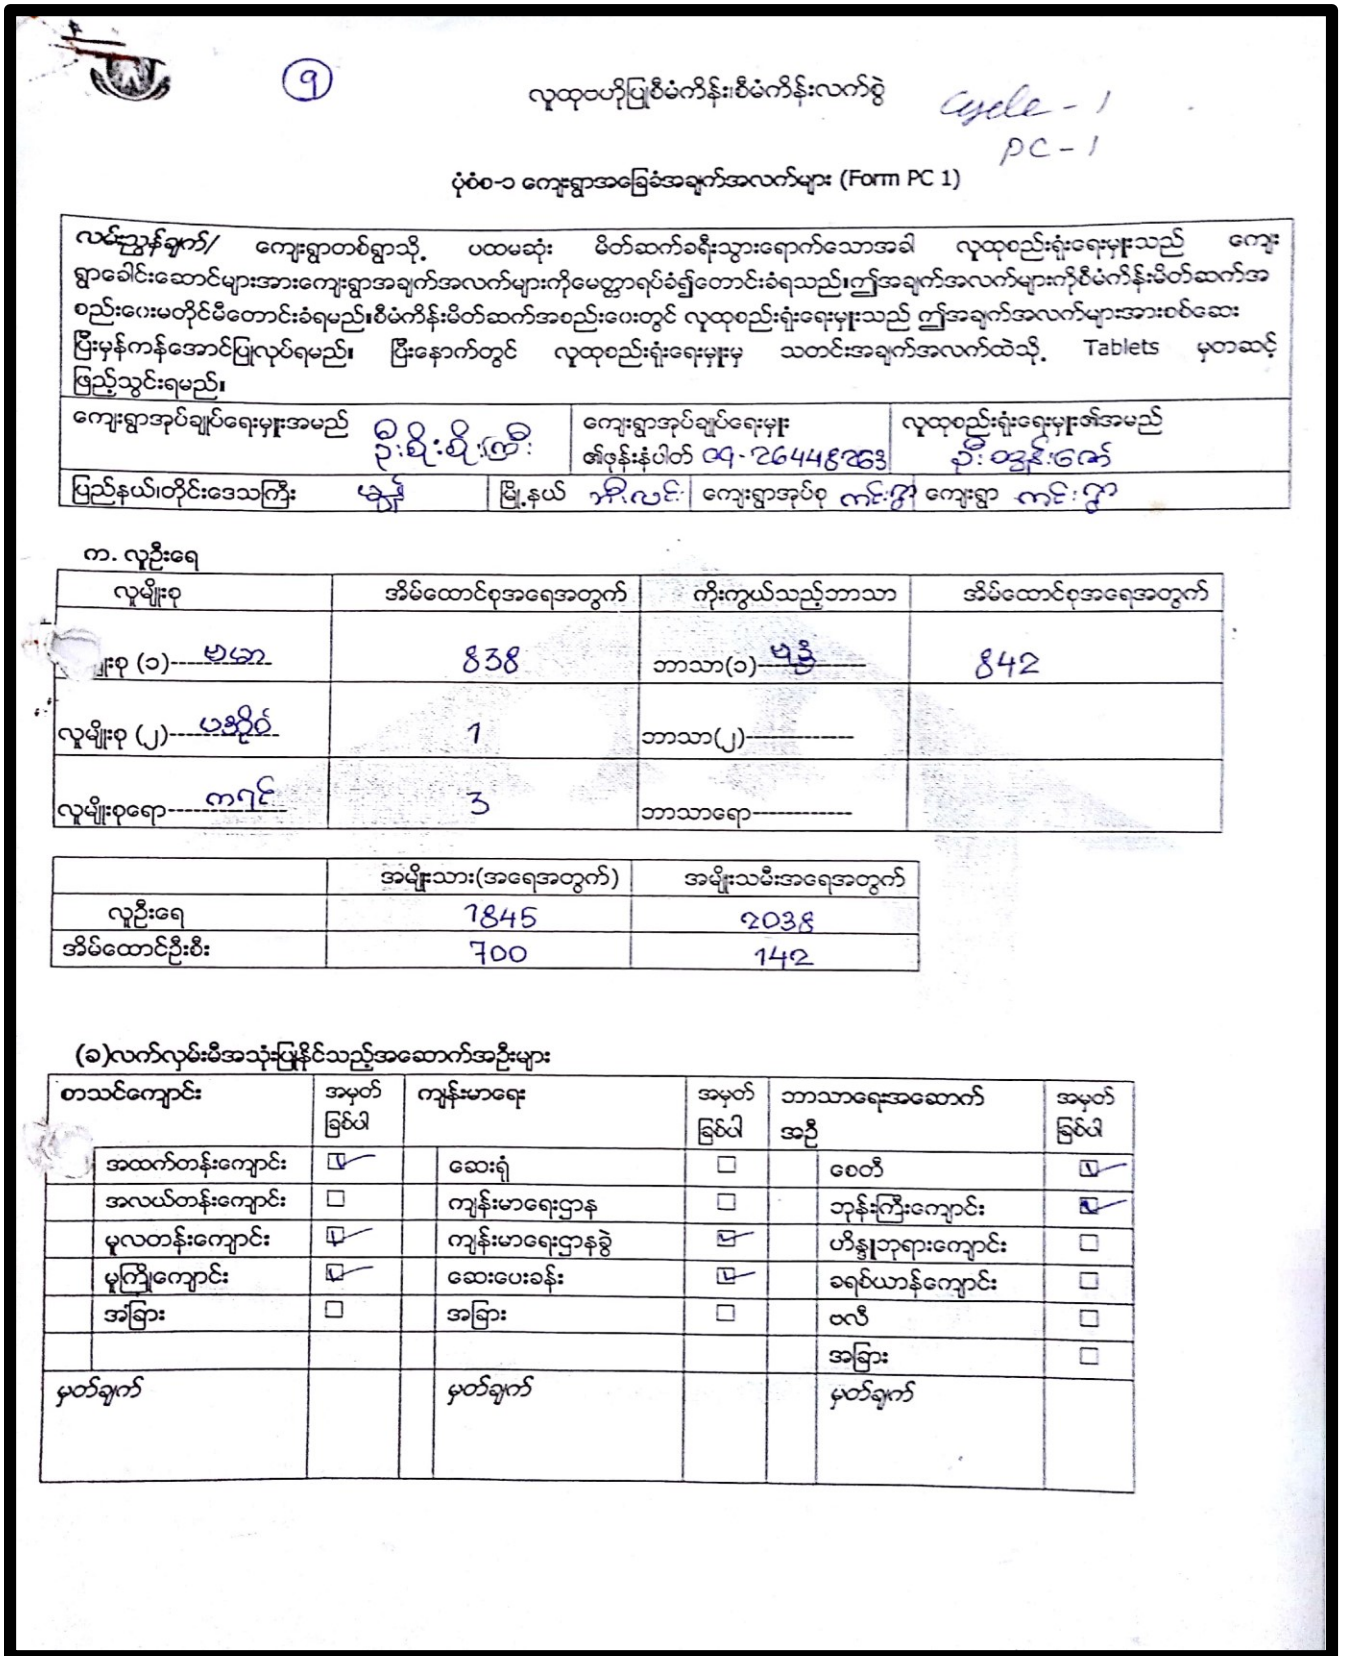 ၅
လူထုဗဟိုပြုစီမံကိန်း၊စီမံကိန်းလက်စွဲ
Cycle - 1
PC - 1
ပုံစံစ-၁ ကျေးရွာအခြေခံအချက်အလက်များ (Form PC 1)
လမ်းညွှန်ချက်/ ကျေးရွာတစ်ရွာသို့ ပထမဆုံး မိတ်ဆက်ခရီးသွားရောက်သောအခါ လူထုစည်းရုံးရေးမှူးသည် ကျေး
ရွာခေါင်းဆောင်များအားကျေးရွာအချက်အလက်များကိုမေတ္တာရပ်ခံ၍တောင်းခံရသည်။ဤအချက်အလက်များကိုစီမံကိန်းမိတ်ဆက်အ
စည်းဝေးမတိုင်မီတောင်းခံရမည်။စီမံကိန်းမိတ်ဆက်အစည်းဝေးတွင် လူထုစည်းရုံးရေးမှူးသည် ဤအချက်အလက်များအားစစ်ဆေး
ပြီးမှန်ကန်အောင်ပြုလုပ်ရမည်။ ပြီးနောက်တွင် လူထုစည်းရုံးရေးမှူးမှ သတင်းအချက်အလက်ထဲသို့ Tablets မှတဆင့်
ဖြည့်သွင်းရမည်။
ကျေးရွာအုပ်ချုပ်ရေးမှူးအမည် ဦးစိုးစိုးကြီး ကျေးရွာအုပ်ချုပ်ရေးမှူး လူထုစည်းရုံးရေးမှူး၏အမည်
၏ဖုန်းနံပါတ် 09-26448263 ဦးထွန်းဇော်
ပြည်နယ်၊တိုင်းဒေသကြီး မွန် မြို့နယ် ဘီးလင်း ကျေးရွာအုပ်စု ကင်းရွာ ကျေးရွာ ကင်းရွာ
က. လူဦးရေ
လူမျိုးစု အိမ်ထောင်စုအရေအတွက် ကိုးကွယ်သည့်ဘာသာ အိမ်ထောင်စုအရေအတွက်
မျိုးစု (၁)---ဗမာ--- 838 ဘာသာ(၁)---ဗုဒ္ဓ--- 842
လူမျိုးစု (၂)---ပအိုဝ်--- 1 ဘာသာ(၂)-------------
လူမျိုးစုရော---ကရင်--- 3 ဘာသာရော-------------
အမျိုးသား(အရေအတွက်) အမျိုးသမီးအရေအတွက်
လူဦးရေ 1845 2038
အိမ်ထောင်ဦးစီး 700 142
(ခ)လက်လှမ်းမီအသုံးပြုနိုင်သည့်အဆောက်အဦးများ
စာသင်ကျောင်း အမှတ် ကျန်းမာရေး အမှတ် ဘာသာရေးအဆောက် အမှတ်
ခြစ်ပါ ခြစ်ပါ အဦ ခြစ်ပါ
အထက်တန်းကျောင်း ☑ ဆေးရုံ ☐ စေတီ ☑
အလယ်တန်းကျောင်း ☐ ကျန်းမာရေးဌာန ☐ ဘုန်းကြီးကျောင်း ☑
မူလတန်းကျောင်း ☑ ကျန်းမာရေးဌာနခွဲ ☑ ဟိန္ဒူဘုရားကျောင်း ☐
မူကြိုကျောင်း ☑ ဆေးပေးခန်း ☑ ခရစ်ယာန်ကျောင်း ☐
အခြား ☐ အခြား ☐ ဗလီ ☐
အခြား ☐
မှတ်ချက် မှတ်ချက် မှတ်ချက်